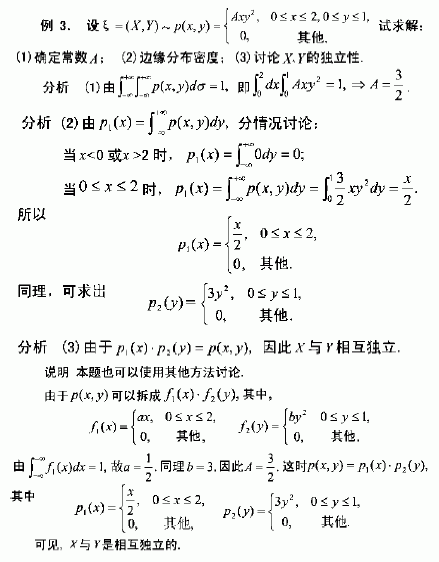 例 3. 设 ξ = (X,Y) ~ p(x,y) = { Axy², 0 ≤ x ≤ 2, 0 ≤ y ≤ 1, 试求解:
0, 其他.
(1)确定常数A; (2)边缘分布密度; (3)讨论 X,Y的独立性.
分析 (1)由∫_{-∞}^{+∞}∫_{-∞}^{+∞} p(x,y)dσ = 1, 即∫_0^2 dx∫_0^1 Axy² = 1, ⇒ A = 3/2.
分析 (2)由 p₁(x) = ∫_{-∞}^{+∞} p(x,y)dy, 分情况讨论:
当x<0 或x >2 时, p₁(x) = ∫_{-∞}^{+∞} 0dy = 0;
当 0 ≤ x ≤ 2 时, p₁(x) = ∫_{-∞}^{+∞} p(x,y)dy = ∫_0^1 3/2 xy²dy = x/2.
所以
p₁(x) = { x/2, 0 ≤ x ≤ 2,
0, 其他.
同理, 可求出
p₂(y) = { 3y², 0 ≤ y ≤ 1,
0, 其他.
分析 (3)由于 p₁(x)·p₂(y) = p(x,y), 因此 X 与 Y 相互独立.
说明 本题也可以使用其他方法讨论.
由于 p(x,y) 可以拆成 f₁(x)·f₂(y), 其中,
f₁(x) = { ax, 0 ≤ x ≤ 2, f₂(y) = { by² 0 ≤ y ≤ 1,
0, 其他, 0, 其他.
由∫_{-∞}^{+∞} f₁(x)dx = 1, 故a = 1/2. 同理 b = 3. 因此A = 3/2. 这时p(x,y) = p₁(x)·p₂(y),
其中
p₁(x) = { x/2, 0 ≤ x ≤ 2, p₂(y) = { 3y², 0 ≤ y ≤ 1,
0, 其他, 0, 其他.
可见, X与Y是相互独立的.